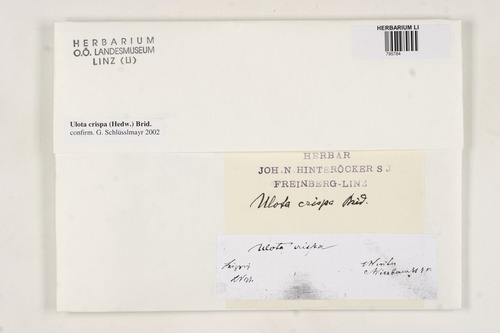 HERBARIUM
O.Ö. LANDESMUSEUM
LINZ (LI)
HERBARIUM LI
795784
Ulota crispa (Hedw.) Brid.
confirm. G. Schlüsslmayr 2002
HERBAR
JOH. N. HINTERÖCKER S J
FREINBERG-LINZ
Ulota crispa Brid.
Ulota crispa